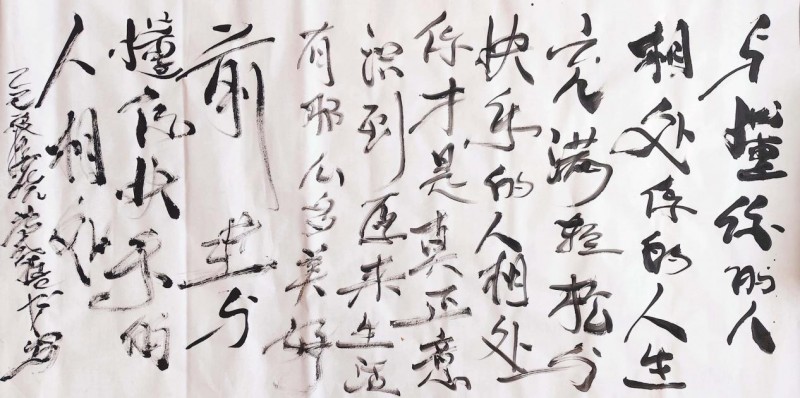 与懂的人
相处你的人生
充满轻松与
快乐的人相处
你才是真正意
识到原来生活
有那么多美好
前与
懂你快乐的
人相处
乙巳夜